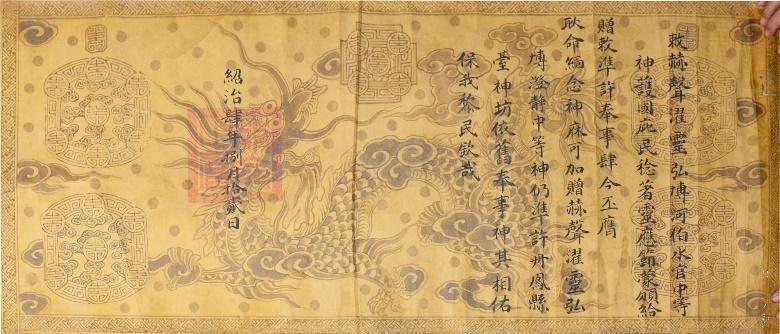 敕赫聲濯靈弘博河伯水官中等
神護國庇民稔著靈應節蒙頒給
贈敕準許奉事肆今丕膺
耿命緬念神庥可加贈赫聲濯靈弘
博澄靜中等神仍準許丹鳳縣
臺神坊依舊奉事神其相佑
保我黎民欽哉
紹治肆年捌月拾貳日